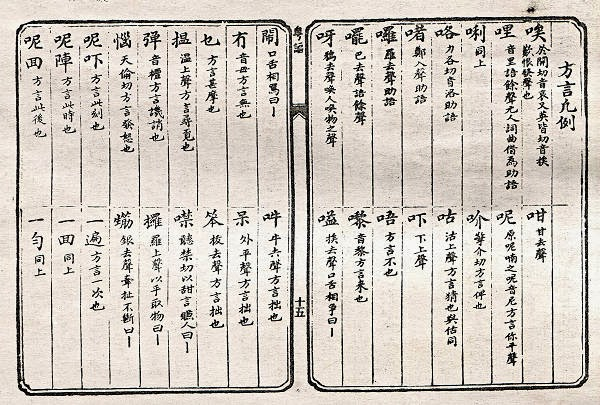 方言凡例
唉 於開切音哀又英皆切音挨歎恨發聲也
哩 音里語餘聲元人詞曲借為助語
唎 同上
咯 力各切音洛助語
啫 鄭入聲助語
囉 羅去聲助語
罷 巴去聲語餘聲
呀 鴉去聲喚人喚物之聲
咁 甘去聲
呢 原呢喃之呢音尼方言你平聲
吤 華介切方言件也
咕 沽上聲方言猜也與估同
吓 下上聲
唔 方言不也
嚟 音黎方言來也
嗌 挨去聲口舌相爭曰一
粵謳
十五
鬧 口舌相罵曰一
冇 音毋方言無也
乜 方言甚麼也
揾 溫上聲方言尋覓也
彈 音檀方言譏誚也
惱 天倫切方言發怒也
呢吓 方言此刻也
呢陣 方言此時也
呢囬 方言此後也
吽 牛去聲方言拙也
呆 外平聲方言拙也
笨 板去聲方言拙也
噤 聽禁切以甜言賺人曰一
攞 羅上聲以手取物曰一
一遍 方言一次也
一囬 同上
一勻 同上